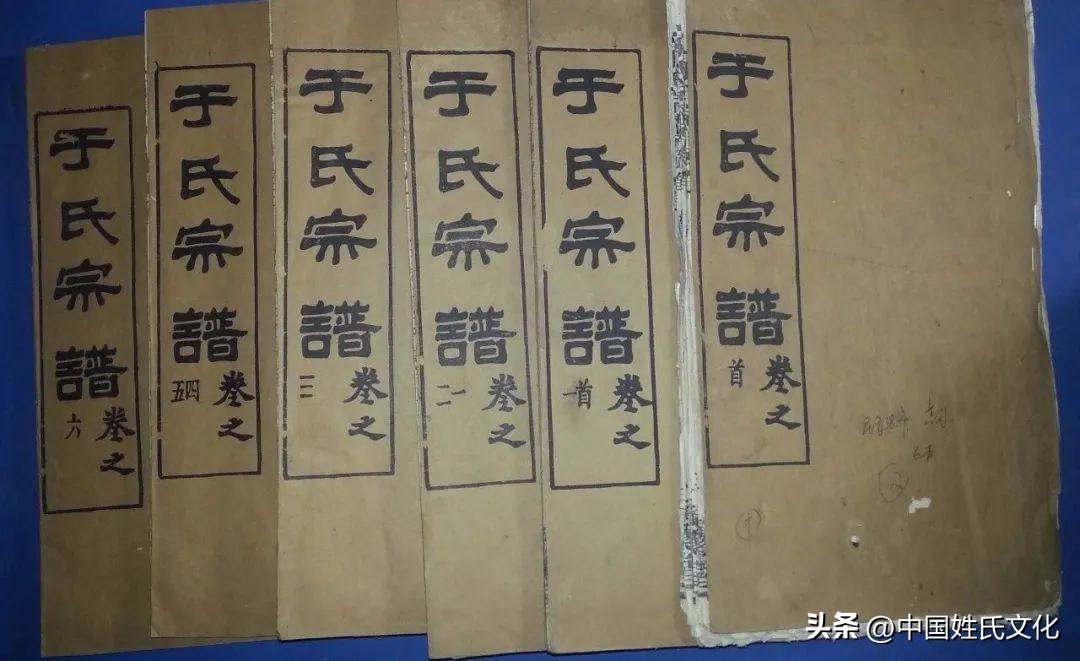 于氏宗譜卷之首
于氏宗譜卷之首一
于氏宗譜卷之一二
于氏宗譜卷之三
于氏宗譜卷之四五
于氏宗譜卷之六
(十)
头条 @中国姓氏文化